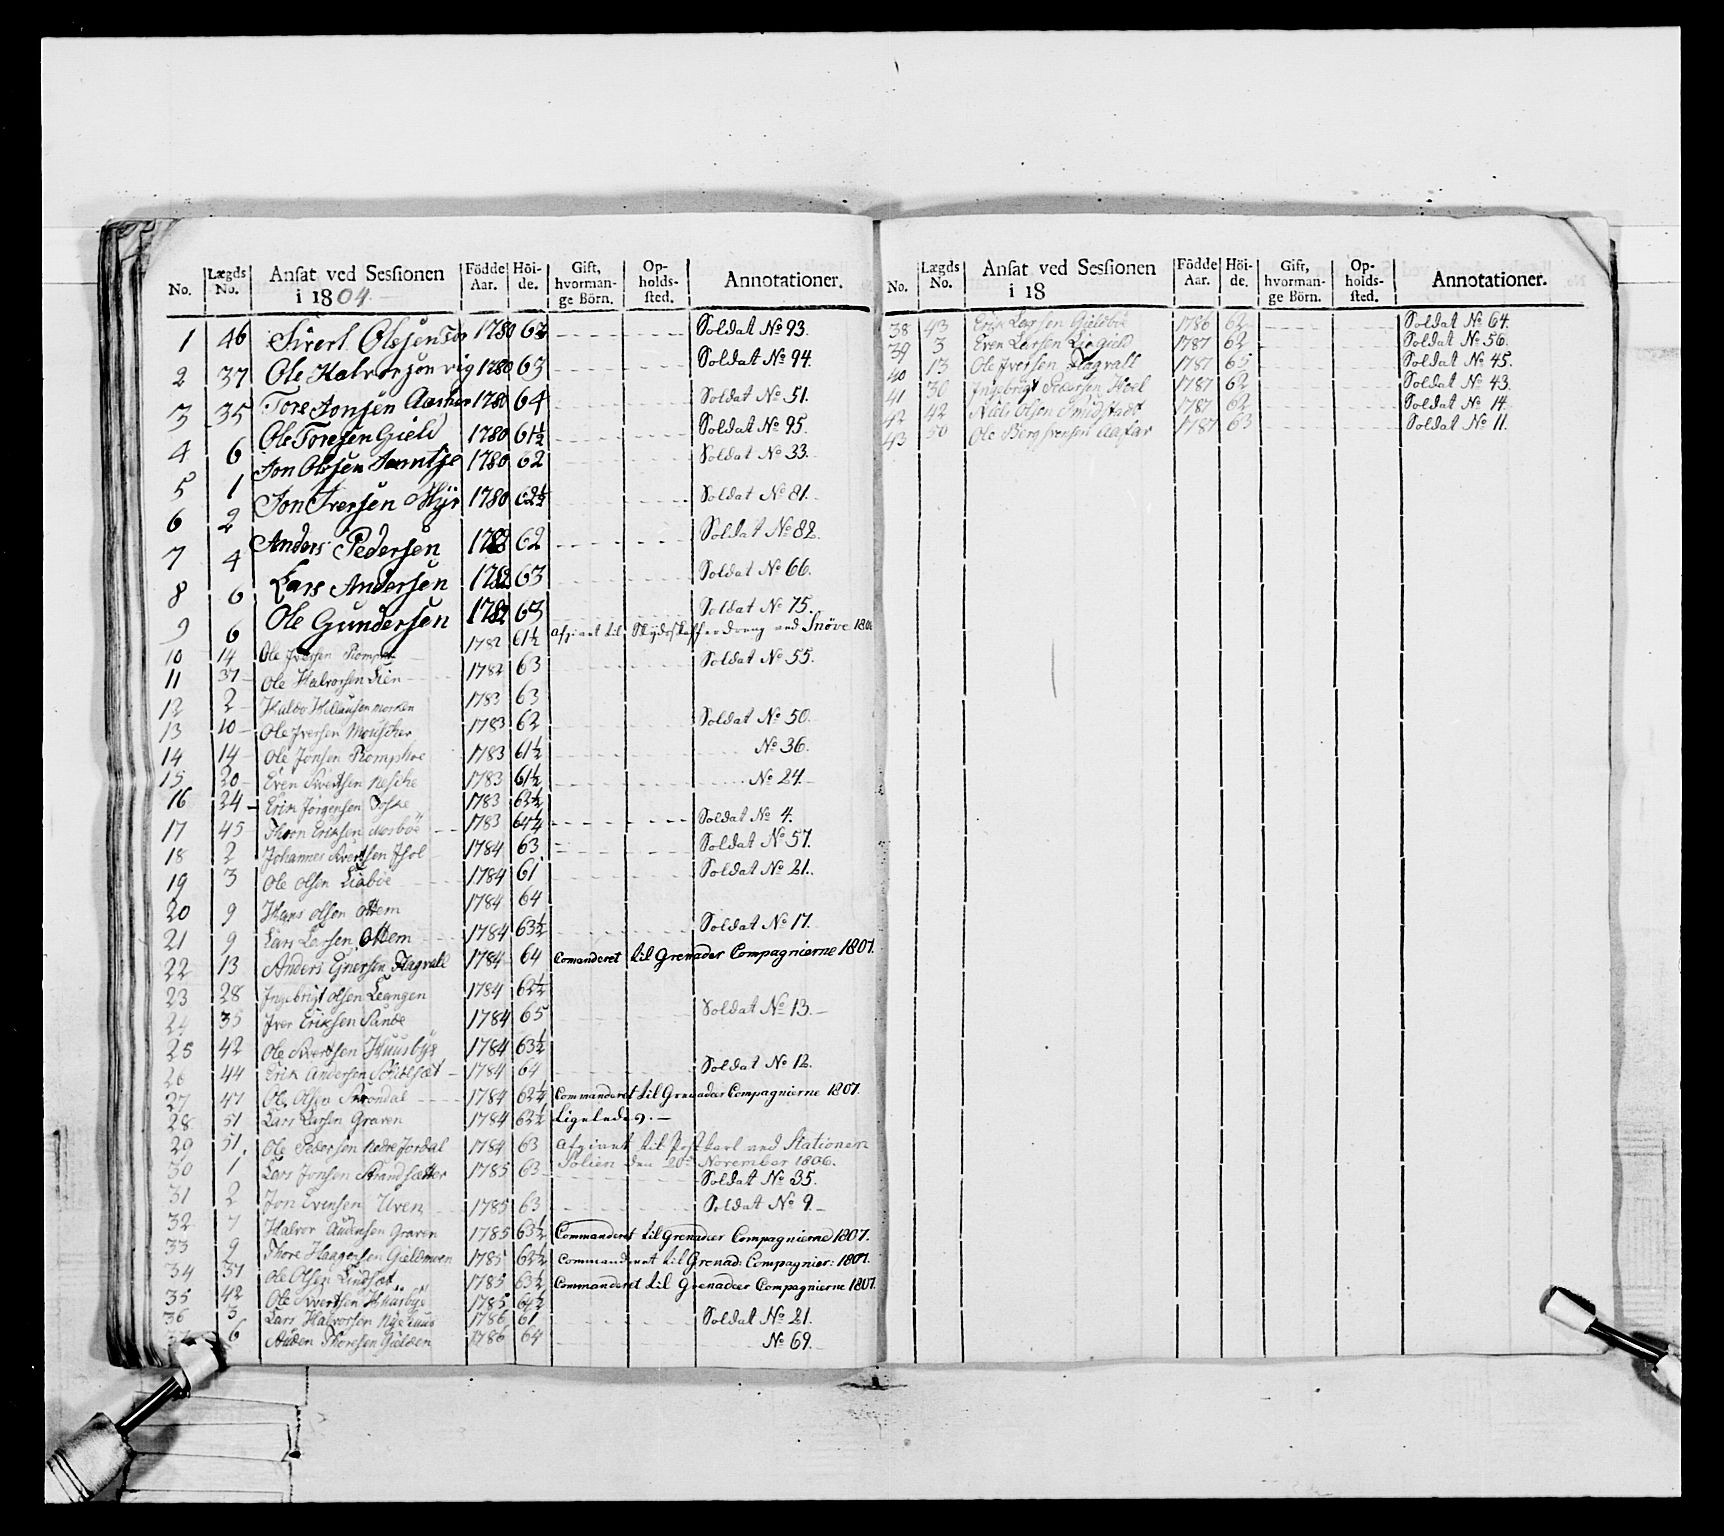 No. Lægds No. Ansat ved Sessionen i 1804 Födde Aar. Höide. Gift, hvormange Börn. Opholdssted. Annotationer.
1 46 Sivert Olesen 1780 Soldat No 93.
2 37 Ole Halvorsen vig 1780 63 Soldat No 94.
3 35 Tore Jonsen 1780 64 Soldat No 51.
4 6 Ole Toresen Gield 1780 61½ Soldat No 95.
5 1 Jon Olesen 1780 62 Soldat No 33.
6 2 Jon Iversen Myr 1780 62½ Soldat No 81.
7 4 Anders Pedersen 1782 62 Soldat No 82.
8 6 Lars Andersen 1782 63 Soldat No 66.
9 6 Ole Gundersen 1782 63 Soldat No 75.
10 14 Ole Iversen 1782 61½ Afgivet til ved Snöve
11 37 Ole Halvorsen Lien 1782 63 Soldat No 55.
12 2 1783 63
13 10 Ole Iversen 1783 62 Soldat No 50.
14 14 Ole Jonsen 1783 61½ No 36.
15 20 Even Sivertsen 1783 61½ No 24.
16 24 Erik Jörgensen 1783 62½
17 45 Eriksen 1783 Soldat No 4.
18 2 Johannes Sivertsen 1784 63 Soldat No 57.
19 3 Ole Olsen Liaböe 1784 61 Soldat No 21.
20 9 Hans Olsen Ottem 1784 64
21 9 Lars Larsen Ottem 1784 63½ Soldat No 17.
22 13 Anders Ejnersen Flagvall 1784 64 Comanderet til Grenader Compagnierne 1807.
23 28 Ingebrigt Olsen Leangen 1784 62½
24 35 Iver Eriksen Sande 1784 65 Soldat No 13.
25 42 Ole Sivertsen Huusbye 1784 63½
26 44 Erik Andersen 1784 64 Soldat No 12.
27 47 Ole Olsen 1784 62½ Commanderet til Grenadeer Compagnierne 1807.
28 51 Lars Larsen Graven 1784 62½ Ligeledes.
29 51. Ole Pedersen Nedre Jordal 1784 63 Afgivet til Post karl ved Stationen
30 1 Lars Jonsen Strandsætter 1785 63 Solien den 20de November 1806.
Soldat No 35.
31 2 Jon Evensen Uren 1785 63 Soldat No 9.
32 7 Halvor Audensen Graven 1785 63½ Commanderet til Grenadeer Compagnierne 1807.
33 9 Thore Haagensen 1785 62½ Commanderet til Grenad: Compagnier: 1807.
34 37 Ole Olsen Lindsæt 1785 63½ Commanderet til Grenadeer Compagnierne 1807.
35 42 Ole Sivertsen Huusbye 1785 64½
36 3 Lars Halvorsen Nyehuus 1786 61 Soldat No 21.
6 Auden Thoresen Gielden 1786 64 No 69.
No. Lægds No. Ansat ved Sessionen i 18 Födde Aar. Höide. Gift, hvormange Börn. Opholdssted. Annotationer.
38 43 Erik Larsen 1786 62 Soldat No 64.
39 3 Even Larsen 1787 62 Soldat No 56.
40 13 Ole Iversen Flagvall 1787 65 Soldat No 45.
41 30 Ingebrigt Pedersen Hoel 1787 62 Soldat No 43.
42 42 Nils Olsen Smidstadt 1787 62 Soldat No 14.
43 50 Ole Bergsvensen 1787 63 Soldat No 11.